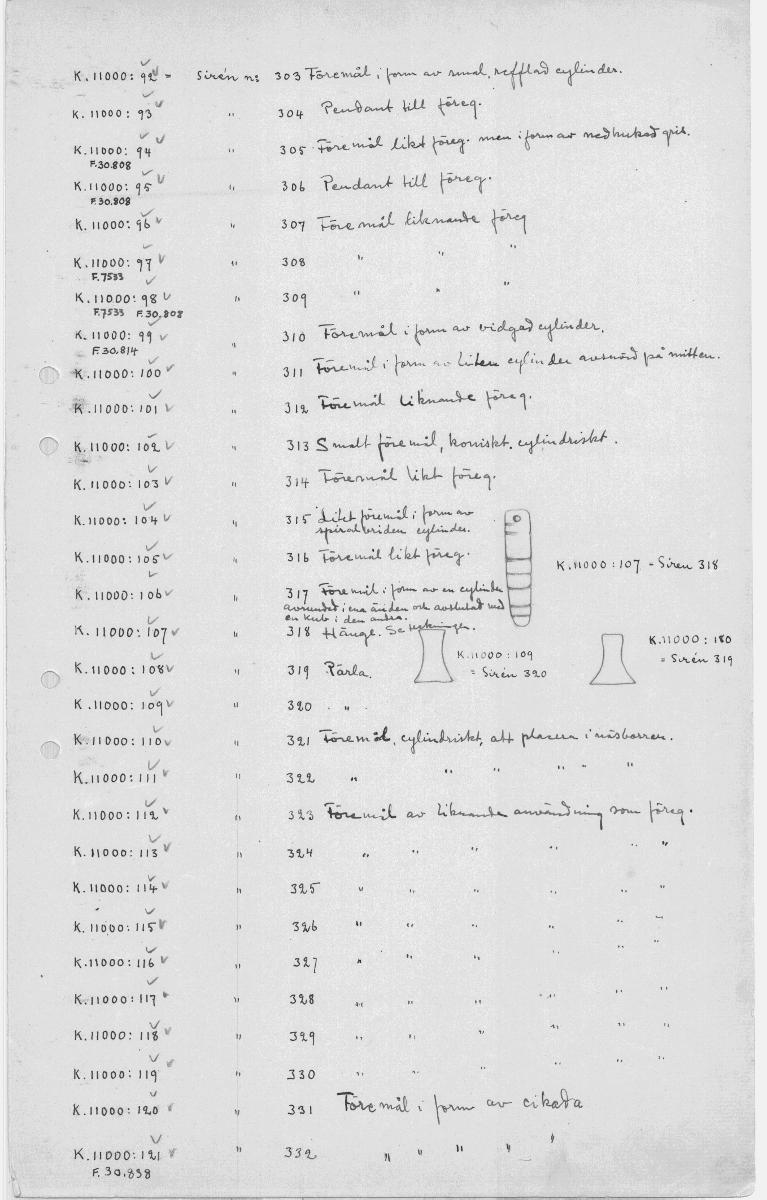 K.11000: 92 = Sirén n: 303 Föremål i form av smal, refflad cylinder.
K. 11000: 93 " 304 Pendant till föreg.
K.11000: 94 " 305 Föremål likt föreg. men i form av nedhukad gris.
F.30.808
K.11000: 95 " 306 Pendant till föreg.
F.30.808
K.11000: 96 " 307 Föremål liknande föreg
K.11000: 97 " 308 " " "
F.7533
K.11000: 98 " 309 " " "
F.7533 F.30,808
K.11000: 99 " 310 Föremål i form av vidgad cylinder.
F.30.814
K.11000: 100 " 311 Föremål i form av liten cylinder avsnörd på mitten.
K.11000: 101 " 312 Föremål liknande föreg.
K.11000: 102 " 313 Smalt föremål, koniskt. cylindriskt.
K.11000: 103 " 314 Föremål likt föreg.
K.11000: 104 " 315 Litet föremål i form av
spiralvriden cylinder.
K.11000: 105 " 316 Föremål likt föreg.
K.11000:107 - Sirén 318
K.11000: 106 " 317 Föremål i form av en cylinder
avrundet i ena änden och avslutad med
en kub i den andra.
K. 11000: 107 " 318 Hänge. Se teckningen.
K.11000: 180
= Sirén 319
K.11000: 109
= Sirén 320
K.11000: 108 " 319 Pärla.
K.11000: 109 " 320 "
K.11000: 110 " 321 Föremål, cylindriskt, att placera i näsborren.
K.11000: 111 " 322 " " " " " "
K.11000: 112 " 323 Föremål av liknande användning som föreg.
K.11000: 113 " 324 " " " " " "
K.11000: 114 " 325 " " " " " "
K.11000: 115 " 326 " " " " " "
K.11000: 116 " 327 " " " " " "
K.11000: 117 " 328 " " " " " "
K.11000: 118 " 329 " " " " " "
K.11000: 119 " 330 " " " " " "
K.11000: 120 " 331 Föremål i form av cikada
K.11000: 121 " 332 " " " " "
F. 30,838